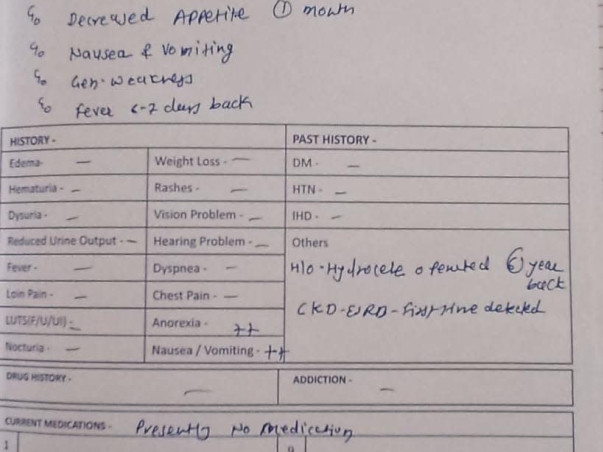 c/o Decreased Appetite ① month
c/o Nausea & Vomiting
c/o Gen. weakness
c/o Fever 6-7 days back
HISTORY - PAST HISTORY -
Edema- — Weight Loss - — DM - —
Hematuria - — Rashes - — HTN - —
Dysuria - — Vision Problem - — IHD - —
Reduced Urine Output - — Hearing Problem - — Others
Fever - — Dyspnea - — H/O - Hydrocele operated ⑥ year
back
Loin Pain - — Chest Pain - —
CKD-ESRD - First time detected
LUTS(F/U/UI) - — Anorexia - ++
Nocturia - — Nausea / Vomiting - ++
DRUG HISTORY - — ADDICTION - —
CURRENT MEDICATIONS - Presently No medication
1 9